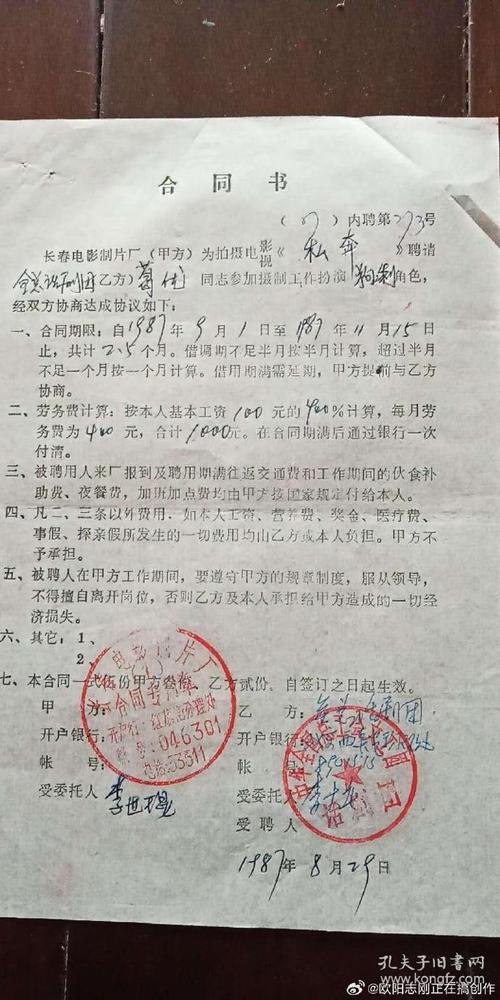 合同书
(87)内聘第273号
长春电影制片厂(甲方)为拍摄电影视《私奔》聘请
全总话剧团乙方)葛优同志参加摄制工作扮演角色,
经双方协商达成协议如下:
一、合同期限:自1987年9月1日至1987年11月15日
止,共计2.5个月。借调期不足半月按半月计算,超过半月
不足一个月按一个月计算。借用期满需延期,甲方提前与乙方
协商。
二、劳务费计算:按本人基本工资100元的400%计算,每月劳
务费为400元,合计1000元。在合同期满后通过银行一次
付清。
三、被聘用人来厂报到及聘用期满往返交通费和工作期间的伙食补
助费、夜餐费,加班加点费均由甲方按国家规定付给本人。
四、凡二、三条以外费用.如本人工资、营养费、奖金、医疗费、
事假、探亲假所发生的一切费用均由乙方或本人负担。甲方不
予承担。
五、被聘人在甲方工作期间,要遵守甲方的规章制度,服从领导,
不得擅自离开岗位,否则乙方及本人承担给甲方造成的一切经
济损失。
六、其它:1、
2、
七、本合同一式伍份甲方叁份,乙方贰份。自签订之日起生效。
甲方: 乙方:全总话剧团
开户银行: 开户银行:
帐号: 帐号:
受委托人 李世 受委托人 李
受聘人
1987年8月29日
电影制片厂
合同专用章
开户行:红旗街办理处
帐号:046301
电话:53311
话剧团
孔夫子旧书网
www.kongfz.com
@欧阳志刚正在搞创作